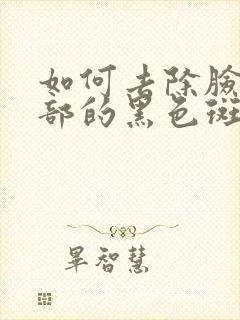 如何去除臉
部的黑色斑
畢智慧